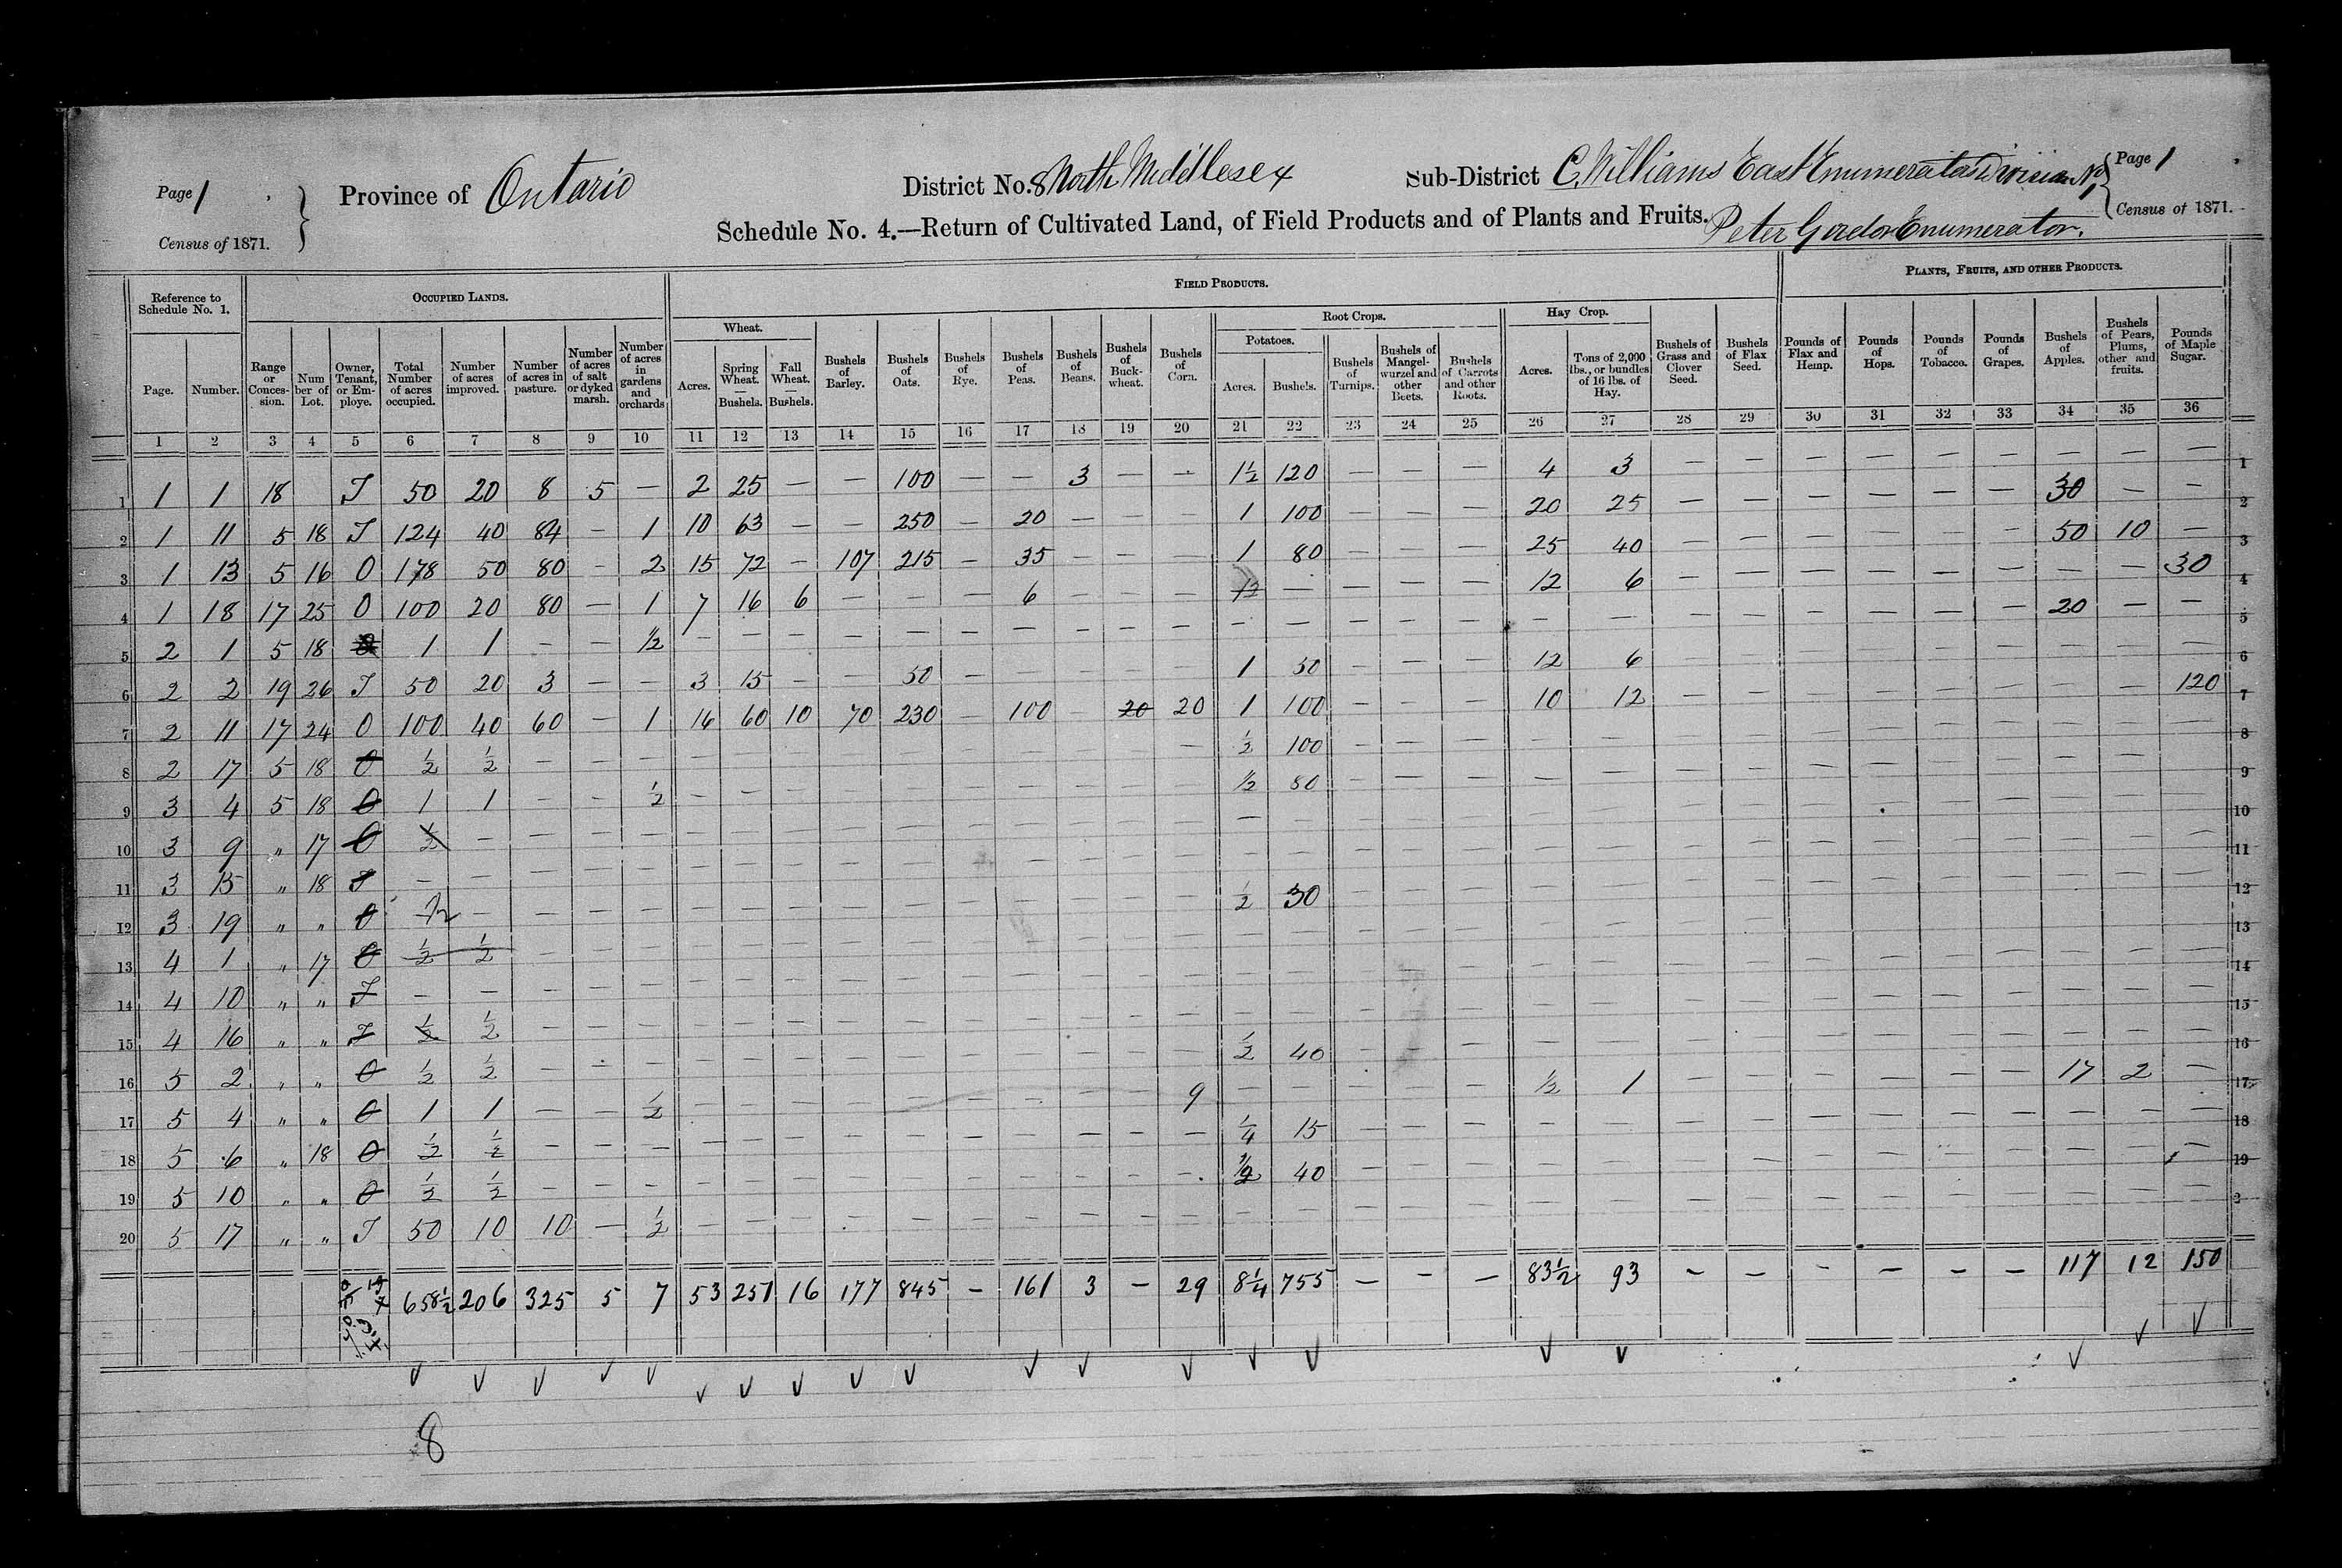 Page 1
Census of 1871.
Province of Ontario
District No. 8 North Middlesex
Sub-District C. Williams East Enumeration Division No 1
Page 1
Census of 1871.
Schedule No. 4.—Return of Cultivated Land, of Field Products and of Plants and Fruits.
Peter Gordon Enumerator.
Reference to Schedule No. 1. | Occupied Lands. | Field Products. | Plants, Fruits, and other Products.
Wheat. | Root Crops. | Hay Crop.
Potatoes.
Page. | Number. | Range or Concession. | Number of Lot. | Owner, Tenant, or Employe. | Total Number of acres occupied. | Number of acres improved. | Number of acres in pasture. | Number of acres of salt or dyked marsh. | Number of acres in gardens and orchards | Acres. | Spring Wheat. — Bushels. | Fall Wheat. — Bushels. | Bushels of Barley. | Bushels of Oats. | Bushels of Rye. | Bushels of Peas. | Bushels of Beans. | Bushels of Buckwheat. | Bushels of Corn. | Acres. | Bushels. | Bushels of Turnips. | Bushels of Mangel-wurzel and other Beets. | Bushels of Carrots and other Roots. | Acres. | Tons of 2,000 lbs., or bundles of 16 lbs. of Hay. | Bushels of Grass and Clover Seed. | Bushels of Flax Seed. | Pounds of Flax and Hemp. | Pounds of Hops. | Pounds of Tobacco. | Pounds of Grapes. | Bushels of Apples. | Bushels of Pears, Plums, other and fruits. | Pounds of Maple Sugar.
1 2 3 4 5 6 7 8 9 10 11 12 13 14 15 16 17 18 19 20 21 22 23 24 25 26 27 28 29 30 31 32 33 34 35 36
1 | 1 1 18 T 50 20 8 5 — 2 25 — — 100 — — 3 — — 1½ 120 — — — 4 3 — — — — — — — — — | 1
2 | 1 11 5 18 T 124 40 84 — 1 10 63 — — 250 — 20 — — — 1 100 — — — 20 25 — — — — — — 30 — — | 2
3 | 1 13 5 16 O 178 50 80 — 2 15 72 — 107 215 — 35 — — — 1 80 — — — 25 40 — — — — — — 50 10 — | 3
4 | 1 18 17 25 O 100 20 80 — 1 7 16 6 — — — 6 — — — ½ — — — — 12 6 — — — — — — — — 30 | 4
5 | 2 1 5 18 O 1 1 — — ½ — — — — — — — — — — — — — — — — — — — — — — — 20 — — | 5
6 | 2 2 19 26 T 50 20 3 — — 3 15 — — 50 — — — — — 1 50 — — — 12 6 — — — — — — — — — | 6
7 | 2 11 17 24 O 100 40 60 — 1 16 60 10 70 230 — 100 — 20 20 1 100 — — — 10 12 — — — — — — — — 120 | 7
8 | 2 17 5 18 O ½ ½ — — — — — — — — — — — — — ½ 100 — — — — — — — — — — — — — — | 8
9 | 3 4 5 18 O 1 1 — — ½ — — — — — — — — — — ½ 80 — — — — — — — — — — — — — — | 9
10 | 3 9 " 17 O ½ — — — — — — — — — — — — — — — — — — — — — — — — — — — — — — | 10
11 | 3 15 " 18 T — — — — — — — — — — — — — — — — — — — — — — — — — — — — — — — | 11
12 | 3 19 " " O ½ — — — — — — — — — — — — — — ½ 30 — — — — — — — — — — — — — — | 12
13 | 4 1 " 17 O ½ ½ — — — — — — — — — — — — — — — — — — — — — — — — — — — — — | 13
14 | 4 10 " " T — — — — — — — — — — — — — — — — — — — — — — — — — — — — — — — | 14
15 | 4 16 " " T ½ ½ — — — — — — — — — — — — — — — — — — — — — — — — — — — — — | 15
16 | 5 2 " " O ½ ½ — — — — — — — — — — — — — ½ 40 — — — — — — — — — — — — — — | 16
17 | 5 4 " " O 1 1 — — ½ — — — — — — — — — 9 — — — — — ½ 1 — — — — — — 17 2 — | 17
18 | 5 6 " 18 O ½ ½ — — — — — — — — — — — — — ¼ 15 — — — — — — — — — — — — — — | 18
19 | 5 10 " " O ½ ½ — — — — — — — — — — — — — ½ 40 — — — — — — — — — — — — — — | 19
20 | 5 17 " " T 50 10 10 — ½ — — — — — — — — — — — — — — — — — — — — — — — — — — | 2
658½ 206 325 5 7 53 251 16 177 845 — 161 3 — 29 8¼ 755 — — — 83½ 93 — — — — — — 117 12 150
8